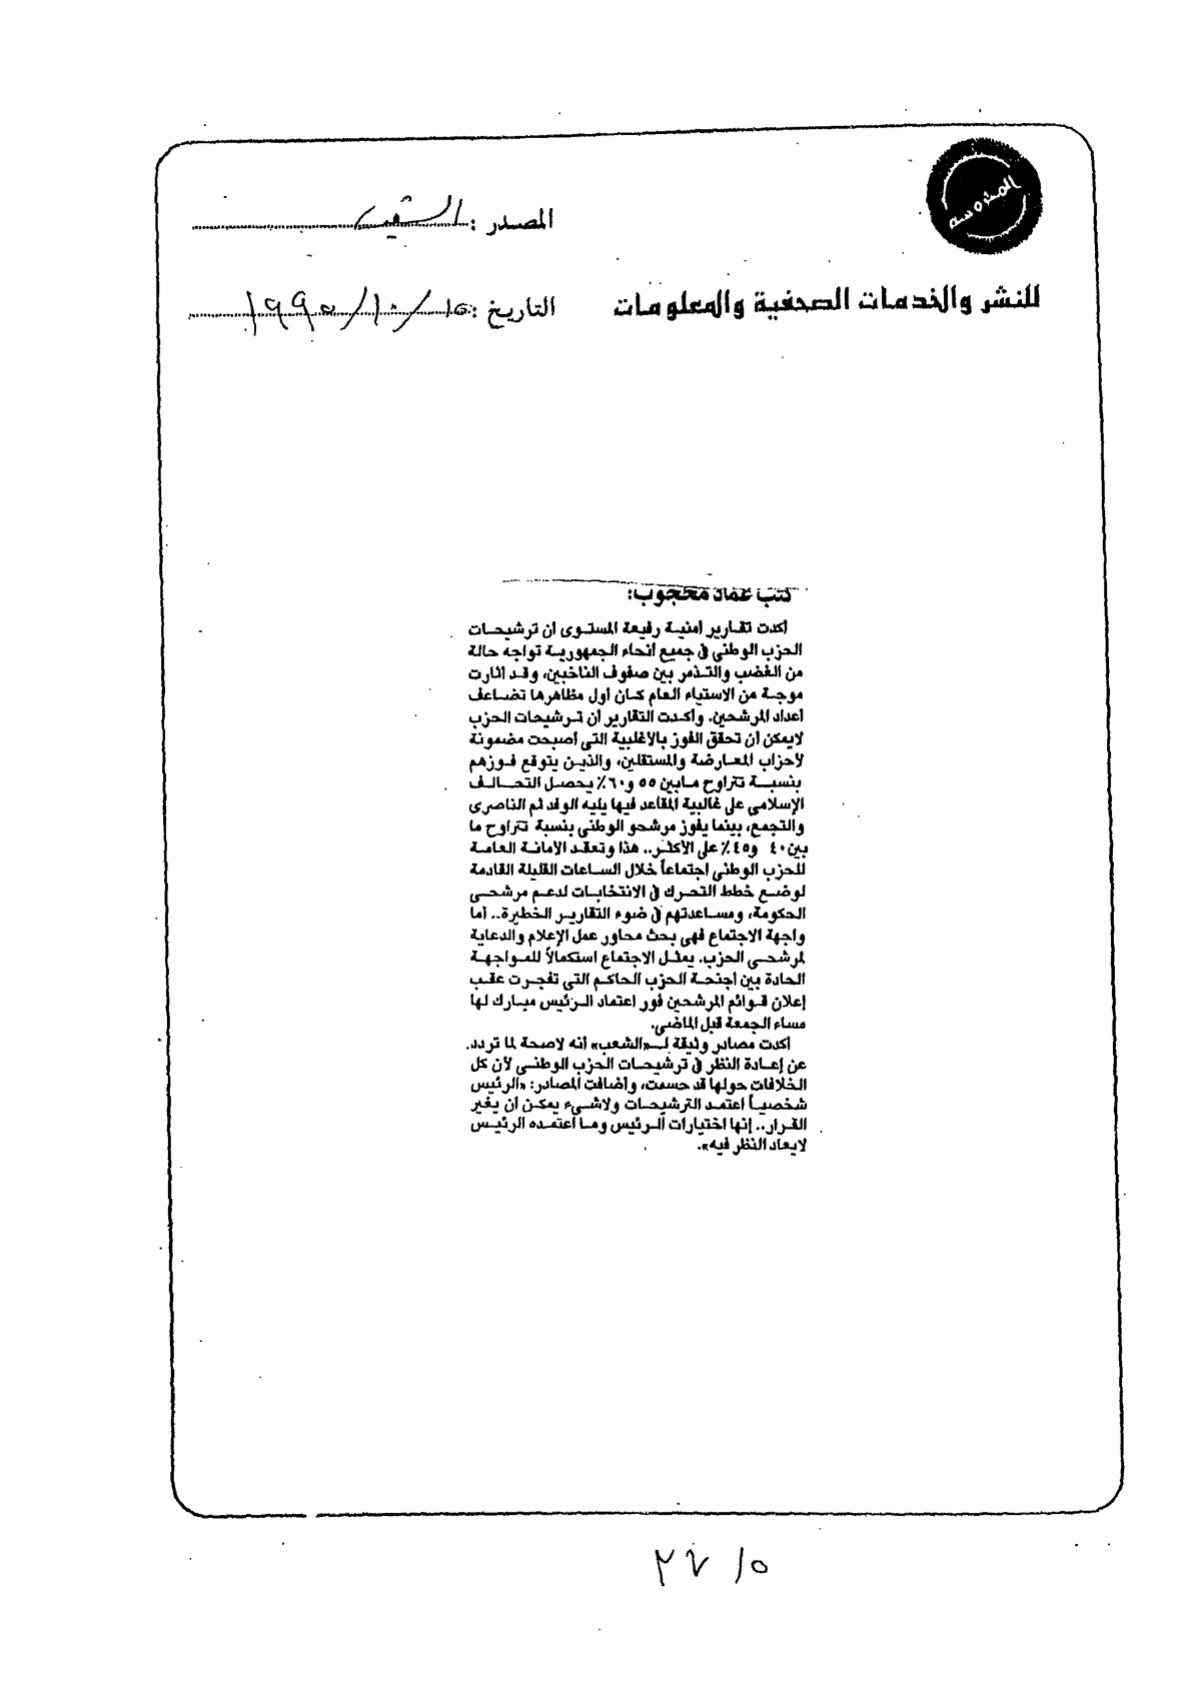 المحروسة
المصدر : الشعب
للنشر والخدمات الصحفية والمعلومات
التاريخ : ١٥ / ١٠ / ١٩٩٥
كتب عماد محجوب:
أكدت تقارير أمنية رفيعة المستوى أن ترشيحات
الحزب الوطني في جميع أنحاء الجمهورية تواجه حالة
من الغضب والتذمر بين صفوف الناخبين، وقد أثارت
موجة من الاستياء العام كان أول مظاهرها تضاعف
أعداد المرشحين. وأكدت التقارير أن ترشيحات الحزب
لايمكن أن تحقق الفوز بالأغلبية التي أصبحت مضمونة
لأحزاب المعارضة والمستقلين، والذين يتوقع فوزهم
بنسبة تتراوح مابين ٥٥ و٦٠٪ يحصل التحالف
الإسلامي على غالبية المقاعد فيها يليه الوفد ثم الناصرى
والتجمع، بينما يفوز مرشحو الوطني بنسبة تتراوح ما
بين ٤٠ و٤٥٪ على الأكثر.. هذا وتعقد الأمانة العامة
للحزب الوطني اجتماعاً خلال الساعات القليلة القادمة
لوضع خطط التحرك في الانتخابات لدعم مرشحي
الحكومة، ومساعدتهم في ضوء التقارير الخطيرة.. أما
واجهة الاجتماع فهي بحث محاور عمل الإعلام والدعاية
لمرشحي الحزب. يمثل الاجتماع استكمالاً للمواجهة
الحادة بين أجنحة الحزب الحاكم التي تفجرت عقب
إعلان قوائم المرشحين فور اعتماد الرئيس مبارك لها
مساء الجمعة قبل الماضي.
أكدت مصادر وثيقة لـ«الشعب» أنه لاصحة لما تردد.
عن إعادة النظر في ترشيحات الحزب الوطني لأن كل
الخلافات حولها قد حسمت، وأضافت المصادر: «الرئيس
شخصياً اعتمد الترشيحات ولاشيء يمكن أن يغير
القرار.. إنها اختيارات الرئيس وما اعتمده الرئيس
لايعاد النظر فيه».